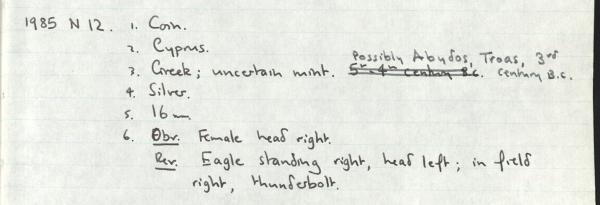 1985 N 12. 1. Coin.
2. Cyprus.
Possibly Abydos, Troas, 3rd
3. Greek; uncertain mint. 5th-4th century B.C. century B.C.
4. Silver.
5. 16 mm.
6. Obv. Female head right.
Rev. Eagle standing right, head left; in field
right, thunderbolt.